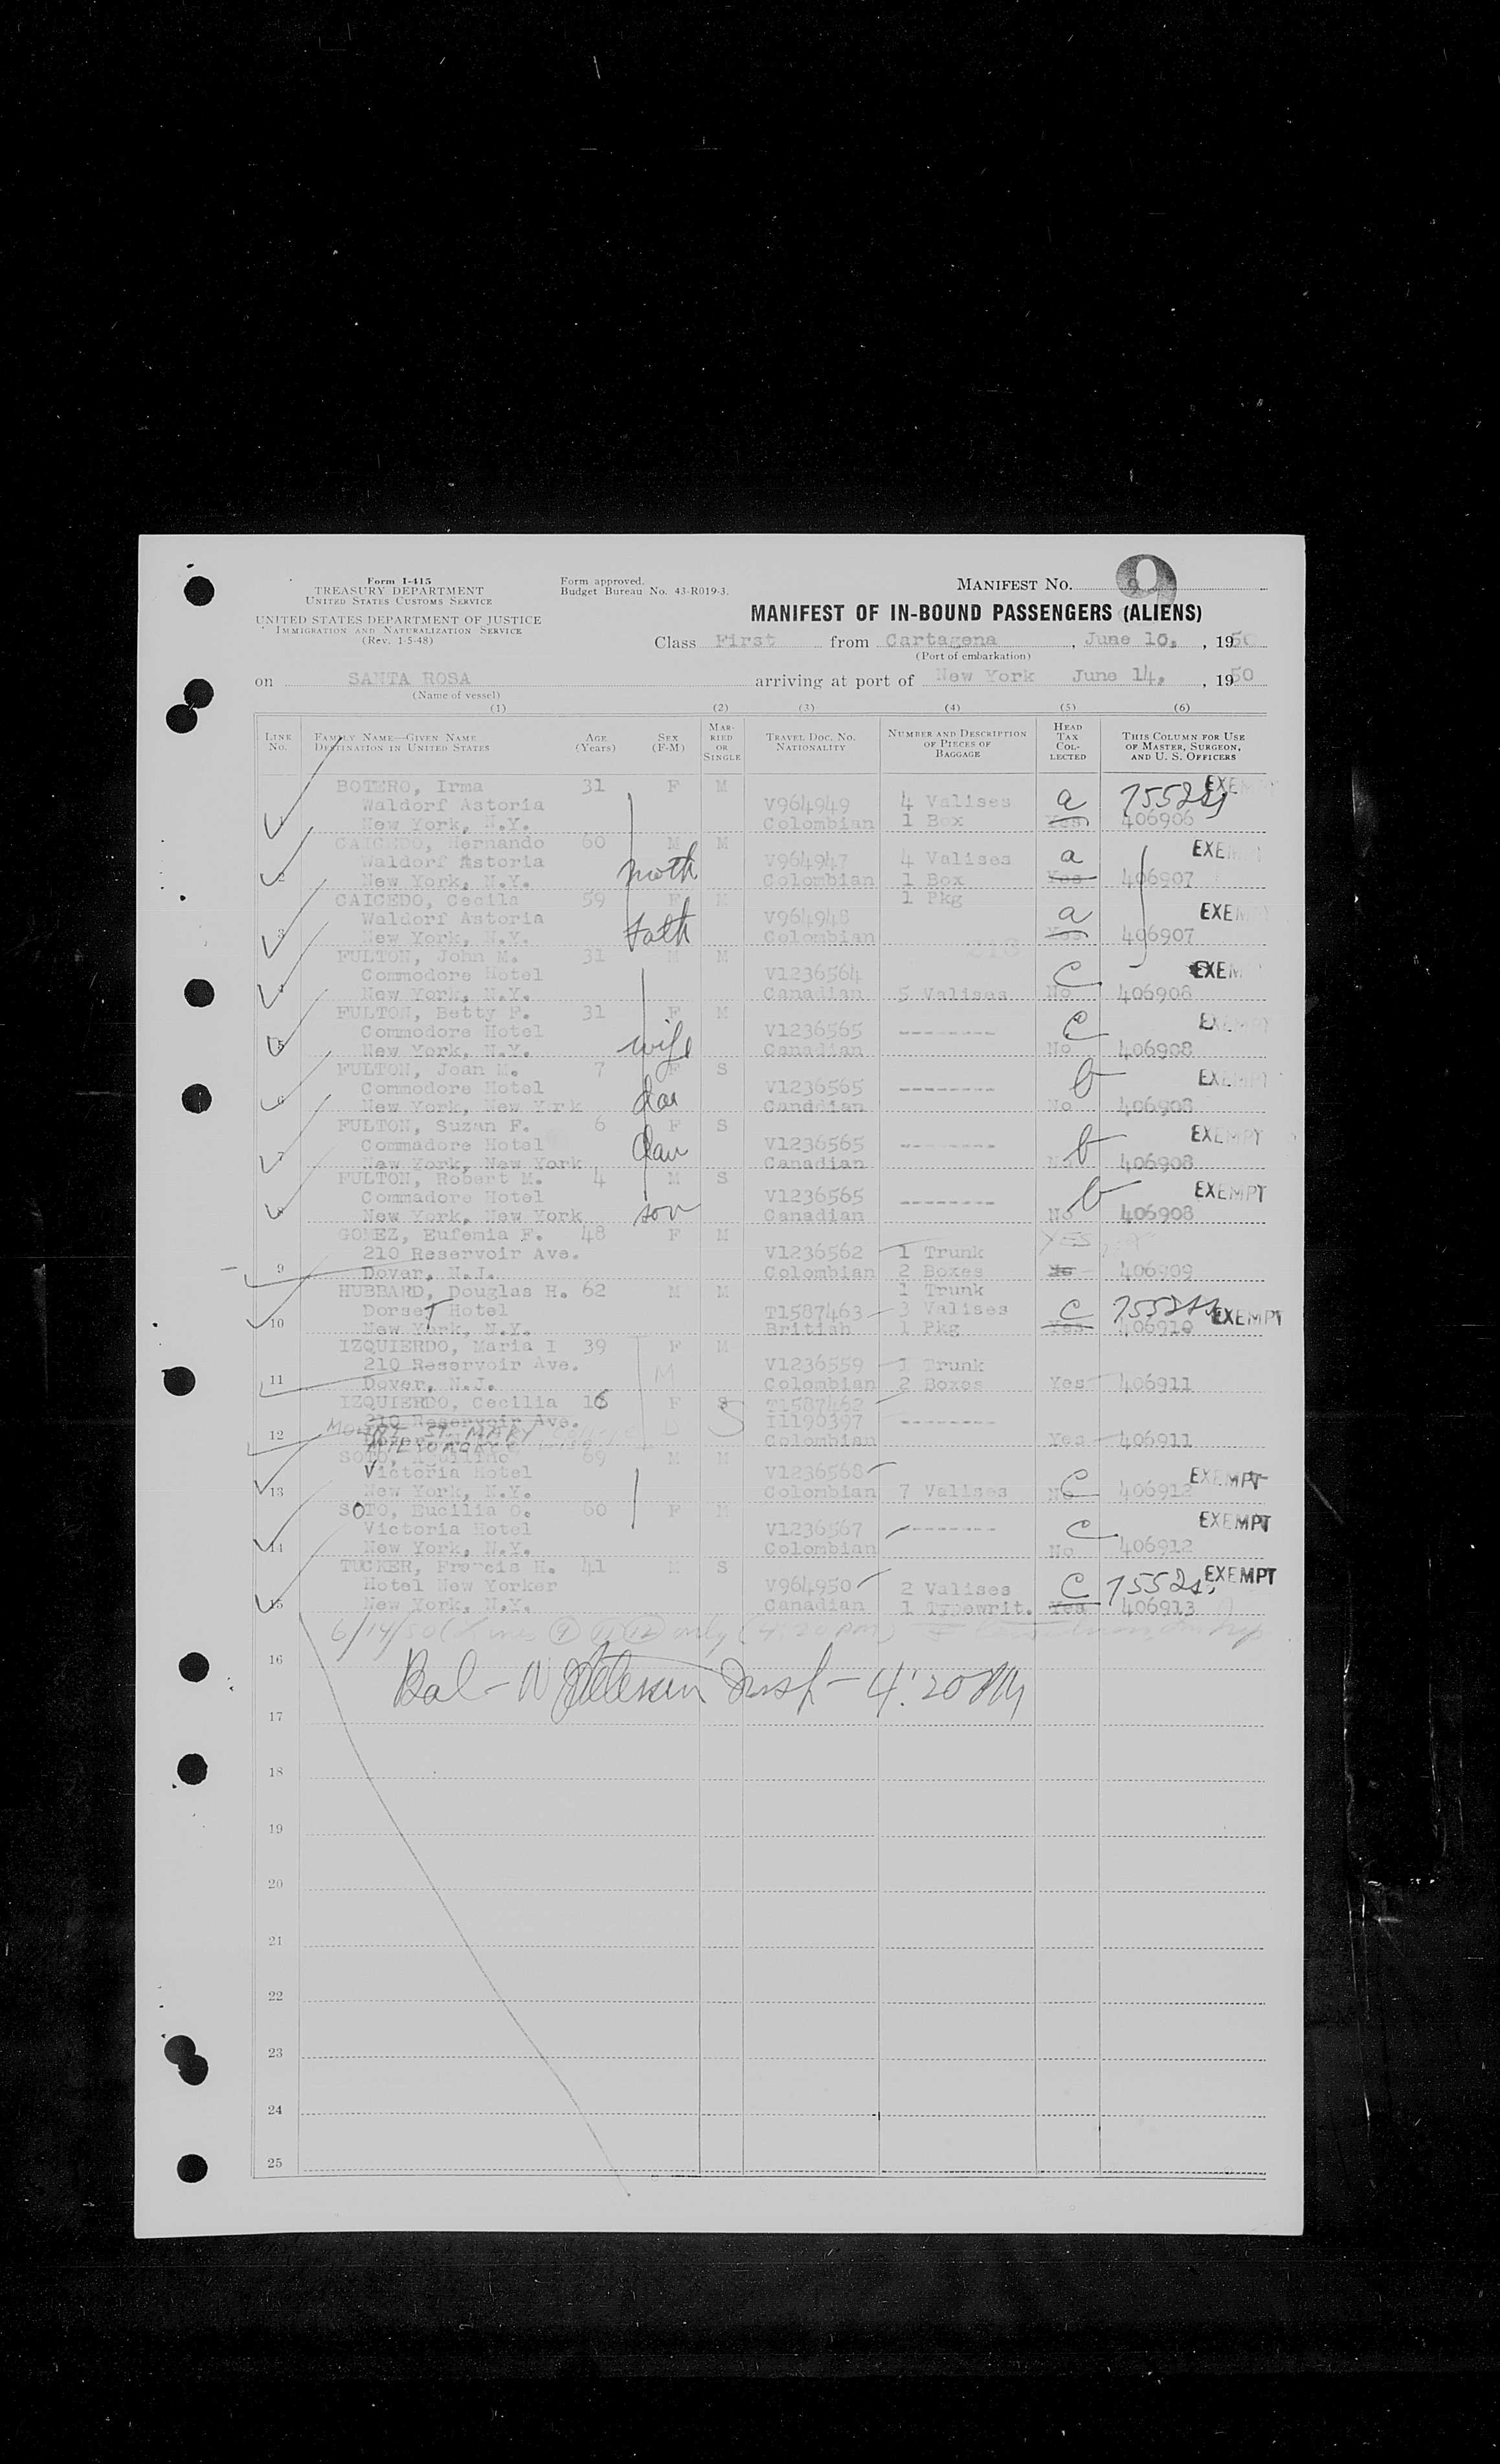 Form I-415
TREASURY DEPARTMENT
UNITED STATES CUSTOMS SERVICE
UNITED STATES DEPARTMENT OF JUSTICE
IMMIGRATION AND NATURALIZATION SERVICE
(Rev. 1-5-48)
Form approved.
Budget Bureau No. 43-R019-3.
MANIFEST NO. 9
MANIFEST OF IN-BOUND PASSENGERS (ALIENS)
Class First from Cartagena, June 10, 1950
(Port of embarkation)
on SANTA ROSA arriving at port of New York June 14, 1950
(Name of vessel)
(1) (2) (3) (4) (5) (6)
LINE No. FAMILY NAME—GIVEN NAME DESTINATION IN UNITED STATES AGE (Years) SEX (F-M) MARRIED OR SINGLE TRAVEL DOC. NO. NATIONALITY NUMBER AND DESCRIPTION OF PIECES OF BAGGAGE HEAD TAX COLLECTED THIS COLUMN FOR USE OF MASTER, SURGEON, AND U. S. OFFICERS
BOTERO, Irma 31 F M EXEMPT
Waldorf Astoria V964949 4 Valises a
New York, N.Y. Colombian 1 Box Yes 406906
CAICEDO, Hernando 60 M M EXEMPT
Waldorf Astoria V964947 4 Valises a
2 New York, N.Y. moth Colombian 1 Box Yes 406907
CAICEDO, Cecila 59 F M 1 Pkg
Waldorf Astoria V964948 a EXEMPT
3 New York, N.Y. Fath Colombian Yes 406907
FULTON, John M. 31 M M
Commodore Hotel V1236564 C EXEM
4 New York, N.Y. Canadian 5 Valises No 406908
FULTON, Betty F. 31 F M
Commodore Hotel V1236565 -------- C EXEMPT
5 New York, N.Y. wife Canadian No 406908
FULTON, Joan M. 7 F S
Commodore Hotel V1236565 -------- b EXEMPT
6 New York, New York dau Canddian No 406908
FULTON, Suzan F. 6 F S EXEMPT
Commadore Hotel dau V1236565 -------- b
7 New York, New York Canadian No 406908
FULTON, Robert M. 4 M S
Commadore Hotel V1236565 -------- b EXEMPT
8 New York, New York son Canadian No 406908
GOMEZ, Eufemia F. 48 F M YES
210 Reservoir Ave. V1236562 1 Trunk
9 Dover, N.J. Colombian 2 Boxes No 406909
HUBBARD, Douglas H. 62 M M 1 Trunk
Dorset Hotel T1587463 3 Valises C EXEMPT
10 New York, N.Y. British 1 Pkg Yes 406910
IZQUIERDO, Maria I 39 F M
210 Reservoir Ave. V1236559 1 Trunk
11 Dover, N.J. Colombian 2 Boxes Yes 406911
IZQUIERDO, Cecilia 16 F S T1587462
210 Reservoir Ave. I1190397 --------
MOUNT ST. MARY
12 Colombian Yes 406911
SOTO, Aguilino 69 M M
Victoria Hotel V1236568 C EXEMPT
13 New York, N.Y. Colombian 7 Valises No 406912
SOTO, Eucilia O. 60 F M
Victoria Hotel V1236567 -------- C EXEMPT
14 New York, N.Y. Colombian No 406912
TUCKER, Francis H. 41 M S
Hotel New Yorker V964950 2 Valises C EXEMPT
15 New York, N.Y. Canadian 1 Typewrit. Yes 406913
6/14/50 (Lines 9 11 12 only (4:20 PM)
16
Bal - Insp - 4:20 PM
17
18
19
20
21
22
23
24
25